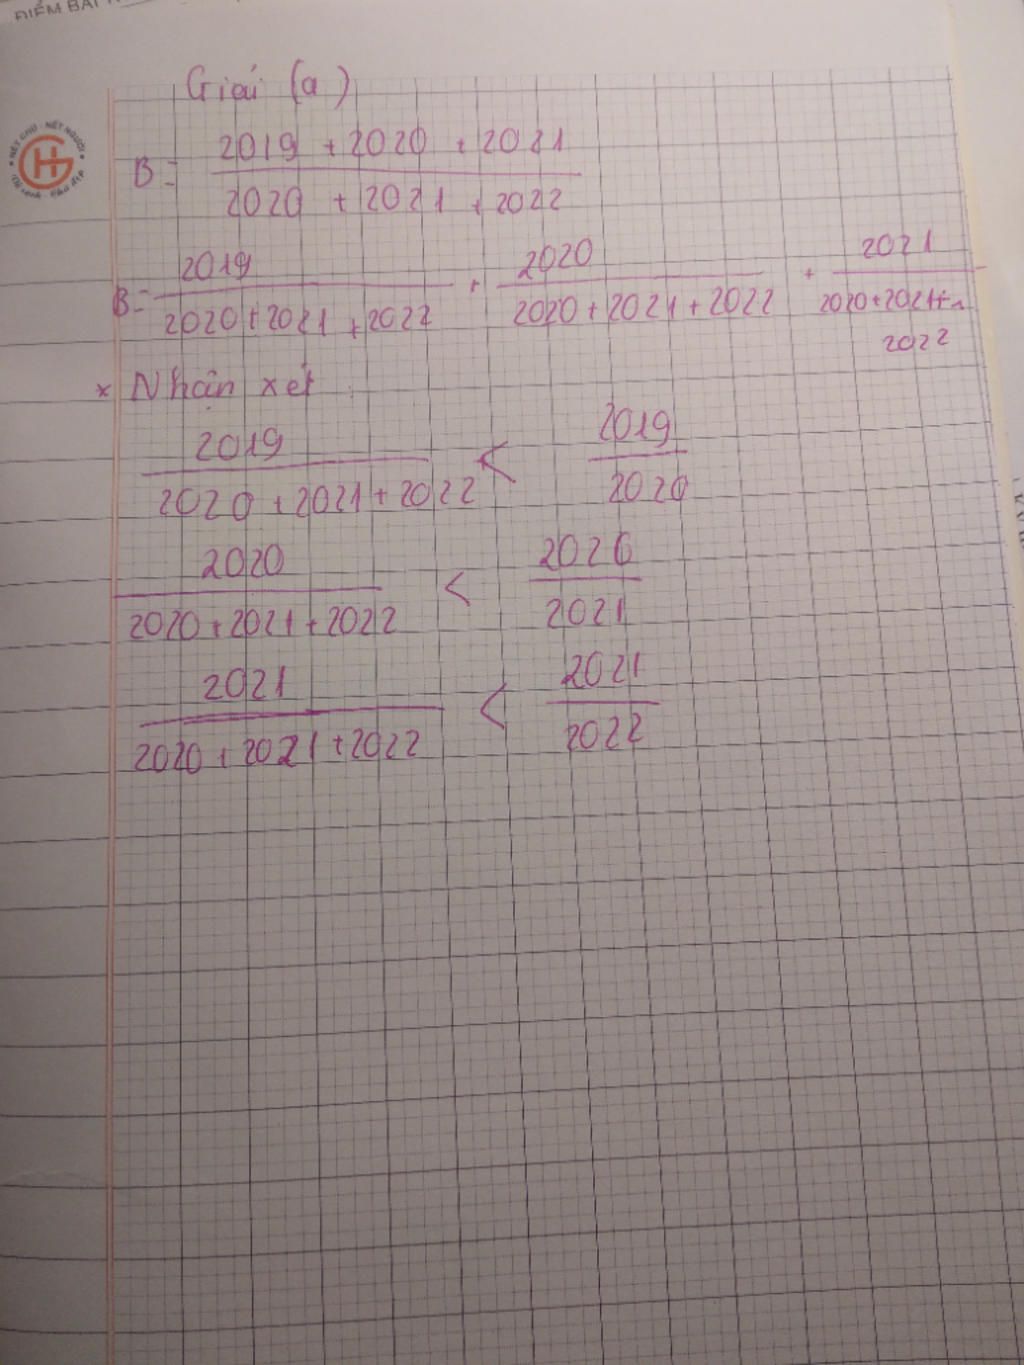 ĐIỂM BÀI
NÉT CHỮ - NẾT NGƯỜI
Giải (a)
B = (2019 + 2020 + 2021) / (2020 + 2021 + 2022)
B = 2019 / (2020 + 2021 + 2022) + 2020 / (2020 + 2021 + 2022) + 2021 / (2020 + 2021 + 2022)
* Nhận xét
2019 / (2020 + 2021 + 2022) < 2019 / 2020
2020 / (2020 + 2021 + 2022) < 2020 / 2021
2021 / (2020 + 2021 + 2022) < 2021 / 2022